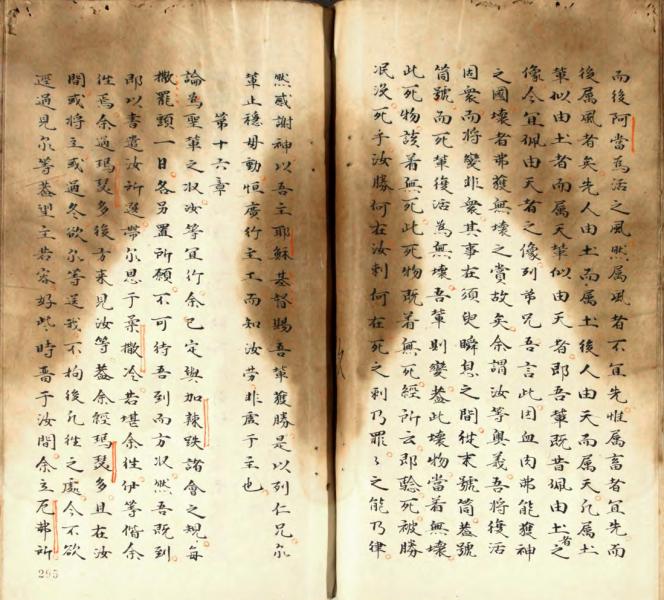 而後阿當為活之風然属風者不宜先惟属畜者宜先而
後属風者矣先人由土而属土後人由天而属天凡属土
輩似由土者而属天輩似由天者即吾輩既昔珮由土者之
像今宜珮由天者之像列弟兄吾言此因血肉弗能獲神
之國壞者弗獲無壞之賞故矣余謂汝等奥義吾将復活
固衆而将變非衆其事在須臾瞬息之間從末號筒葢號
筒號而死輩復活為無壞吾輩則變葢此壞物當着無壞
此死物該着無死此死物既着無死經所云即騐死被勝
泯没死乎汝勝何在汝刺何在死之刺乃罪々之能乃律
然感謝神以吾主耶穌基督賜吾輩獲勝是以列仁兄尔
輩止穏毋動恒廣行主工而知汝劳非虚于主也
第十六章
論為聖輩之収汝等宜行余已定與加辣珠諸會之規每
撒罷頭一日各另置所願不可待吾到而方収然吾既到
即以書遣汝所選帶尔恩于柔撒冷若堪余徃伊等偕余
徃焉余過瑪瑟多後方來見汝等葢余經瑪瑟多且在汝
間或将主或過冬欲尔等送我不拘後凡徃之處今不欲
逕過見尔等葢望主若容好些時畱于汝間余立厄弗所
295